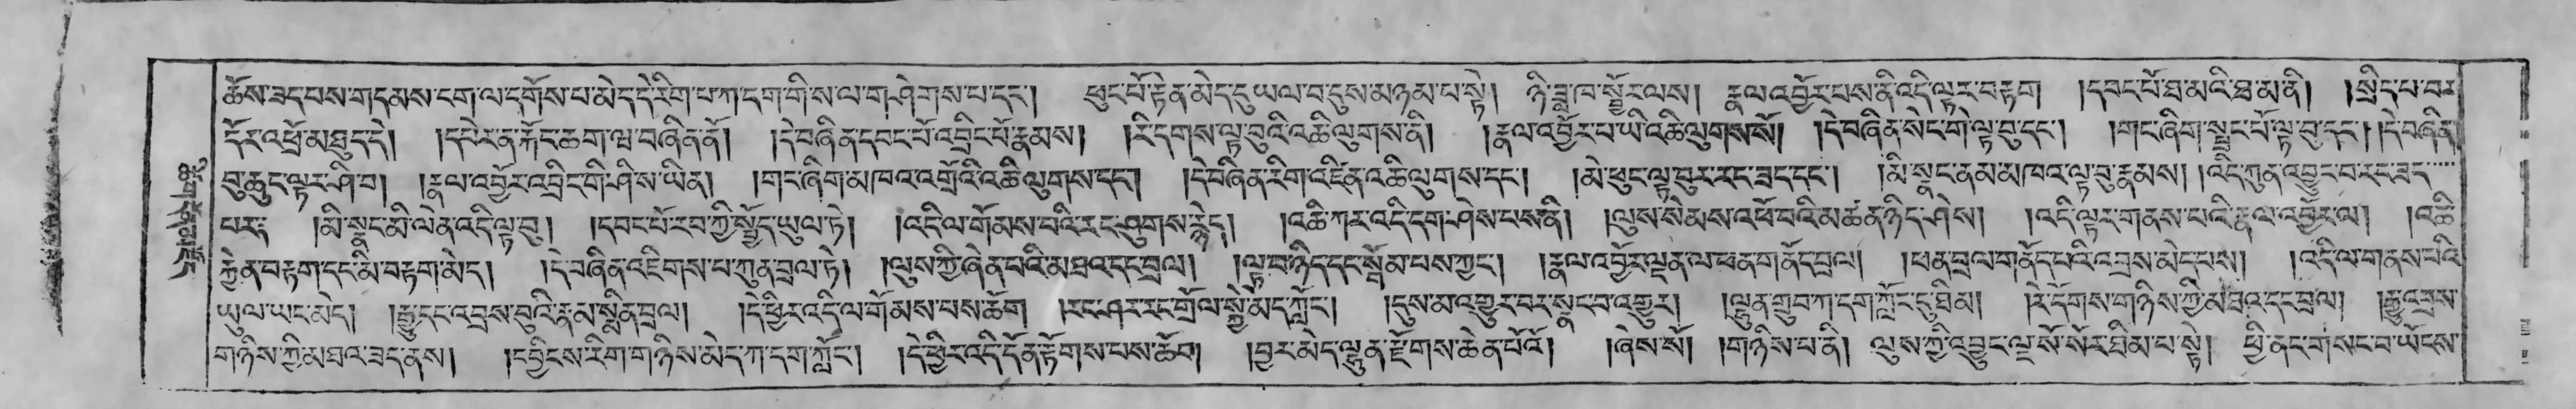 ཆོས་ཟད་པས་གདམས་ངག་ལ་དགོས་པ་མེད་དེ་རིག་པ་ཀ་དག་གི་ས་ལ་གཤེགས་པ་དང་། ཕུང་པོ་རྟེན་མེད་དུ་ཡལ་བ་དུས་མཉམ་པ་སྟེ། ཉི་ཟླ་ཁ་སྦྱོར་ལས། རྣལ་འབྱོར་པས་ནི་འདི་ལྟར་བརྟག །དབང་པོ་ཐ་མའི་ཐ་མ་ནི། །སྲིད་པ་བར་
དོར་འཕྲོ་མཐུད་དེ། །དཔེར་ན་རྐོད་ཆག་ལྟ་བ་བཞིན་ནོ། །དེ་བཞིན་དབང་པོ་འབྲིང་པོ་རྣམས། །རི་དགས་ལྟ་བུའི་འཆི་ལུགས་ནི། །རྣལ་འབྱོར་པ་ཡི་འཆི་ལུགས་སོ། །དེ་བཞིན་སེང་གེ་ལྟ་བུ་དང་། །གང་ཞིག་སྤྲང་པོ་ལྟ་བུ་དང་། །དེ་བཞིན་
བུ་ཆུང་ལྟར་ཤི་བ། །རྣལ་འབྱོར་འབྲིང་གི་ཤི་ས་ཡིན། །གང་ཞིག་མཁའ་འགྲོའི་འཆི་ལུགས་དང་། །དེ་བཞིན་རིག་འཛིན་འཆི་ལུགས་དང་། །མེ་ཕུང་ལྟ་བུར་རང་ཟད་དང་། །མི་སྣང་ནམ་མཁའ་ལྟ་བུ་རྣམས། །འདི་ཀུན་འབྱུང་བ་རང་ཟད་
པར། །མི་སྣང་མི་ལེན་འདི་ལྟ་བུ། །དབང་པོ་རབ་ཀྱི་སྤྱོད་ཡུལ་ཏེ། །འདི་ལ་གོམས་པའི་རང་ཤུགས་རྙེད། །འཆི་ཀར་འདི་དག་ཤེས་པས་ནི། །ལུས་སེམས་འཕོ་བའི་མཚན་ཉིད་ཤེས། །འདི་ལྟར་གནས་པའི་རྣལ་འབྱོར་ལ། །འཆི་
རྐྱེན་བརྟག་དང་མི་བརྟག་མེད། །དེ་བཞིན་འཇིགས་པ་ཀུན་བྲལ་ཏེ། །ལུས་ཀྱི་ཞེན་པའི་མཐའ་དང་བྲལ། །ལྟ་བ་ཉིད་དང་སྒོམ་པས་ཀྱང་། །རྣལ་འབྱོར་ལྡན་ལ་ཕན་གནོད་བྲལ། །ཕན་བྲལ་གནོད་པའི་འབྲས་མེད་པས། །འདི་ལ་གནས་པའི་
ཡུལ་ཡང་མེད། །རྒྱུ་དང་འབྲས་བུའི་རྣམ་སྨིན་བྲལ། །དེ་ཕྱིར་འདི་ལ་གོམས་པས་ཆོག །རང་ཤར་རང་གྲོལ་སྐྱེ་མེད་ཀློང་། །དུས་མ་འགྱུར་བར་སྣང་བ་འགྱུར། །ལྷུན་གྲུབ་ཀ་དག་ཀློང་དུ་ཐིམ། །རེ་དོགས་གཉིས་ཀྱི་མཐའ་དང་བྲལ། །རྒྱུ་འབྲས་
གཉིས་ཀྱི་མཐའ་ཟད་ནས། །དབྱིངས་རིག་གཉིས་མེད་ཀ་དག་ཀློང་། །དེ་ཕྱིར་འདི་དོན་རྟོགས་པས་ཆོག །བྱར་མེད་ལྷུན་རྫོགས་ཆེན་པོའོ། །ཞེས་སོ། །གཉིས་པ་ནི། ལུས་ཀྱི་འབྱུང་ལྔ་སོ་སོར་ཐིམ་པ་སྟེ། ཕྱི་ནང་གསང་བ་ཡོངས་